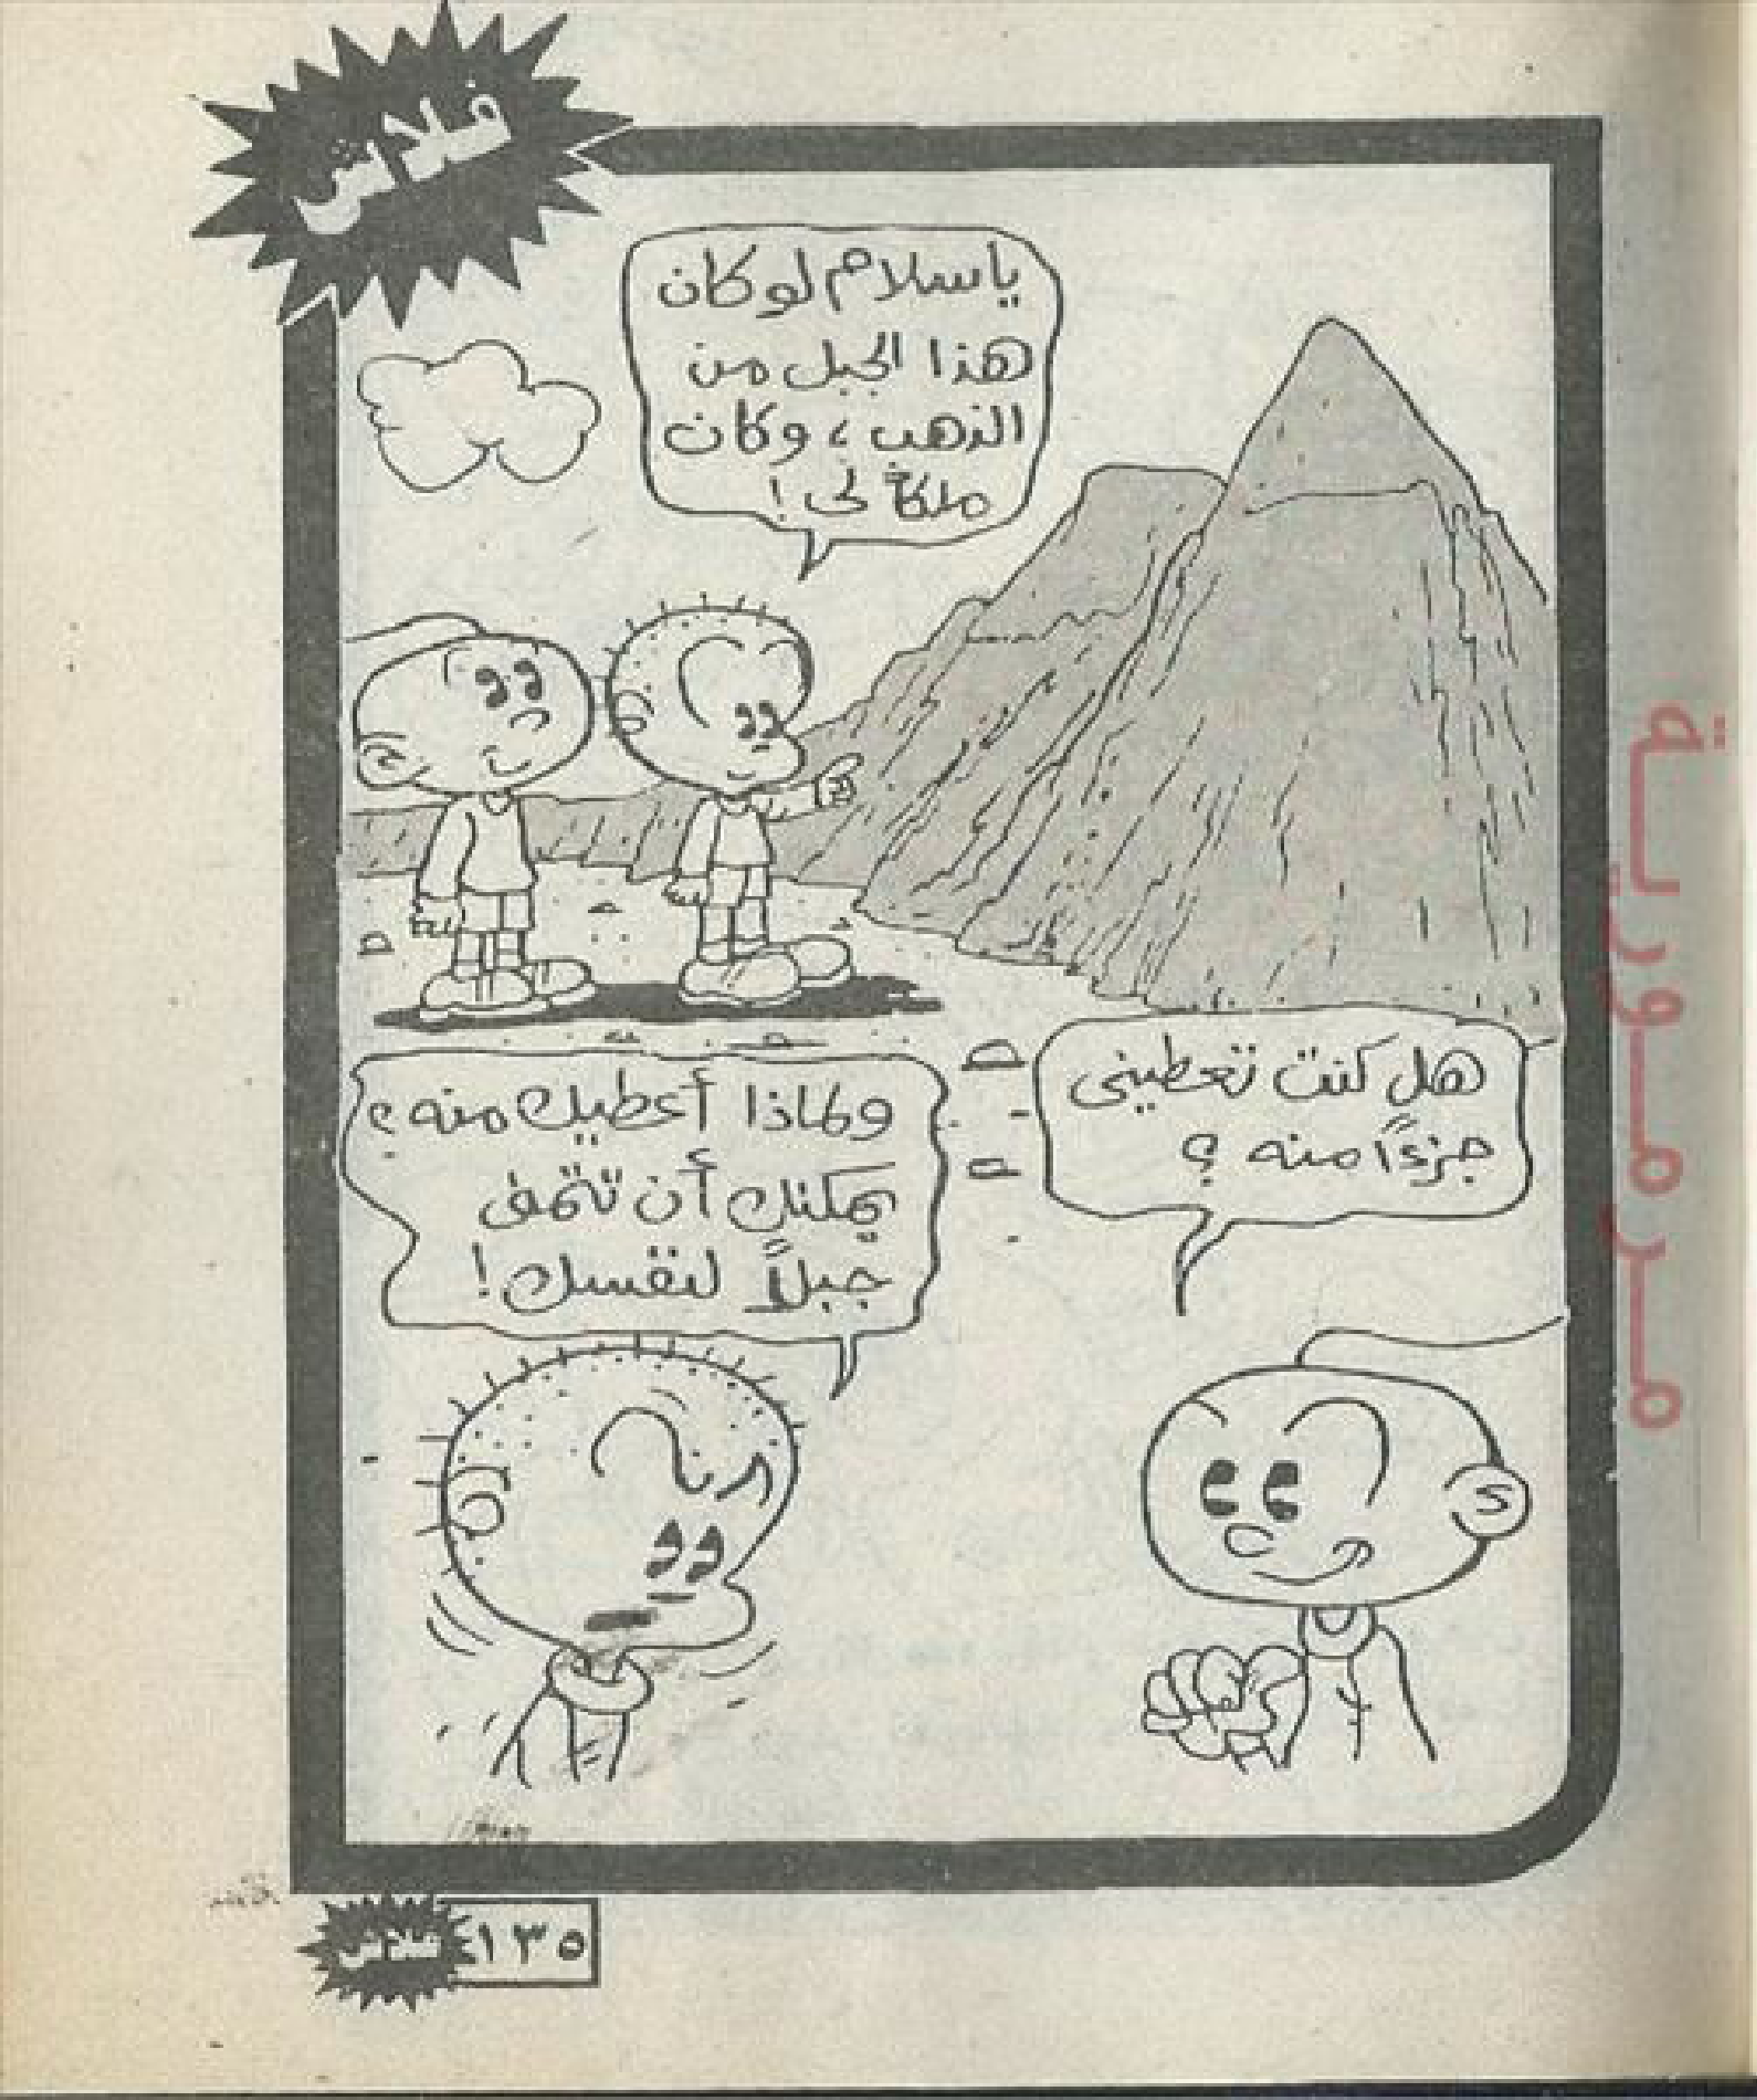 فلاش
ياسلام لو كان
هذا الجبل من
الذهب، وكان
ملكاً لى!
هل كنت تعطينى
جزءاً منه؟
ولماذا أعطيك منه؟
يمكنك أن تتمنى
جبلاً لنفسك!
فلاش
١٣٥
مرمورية